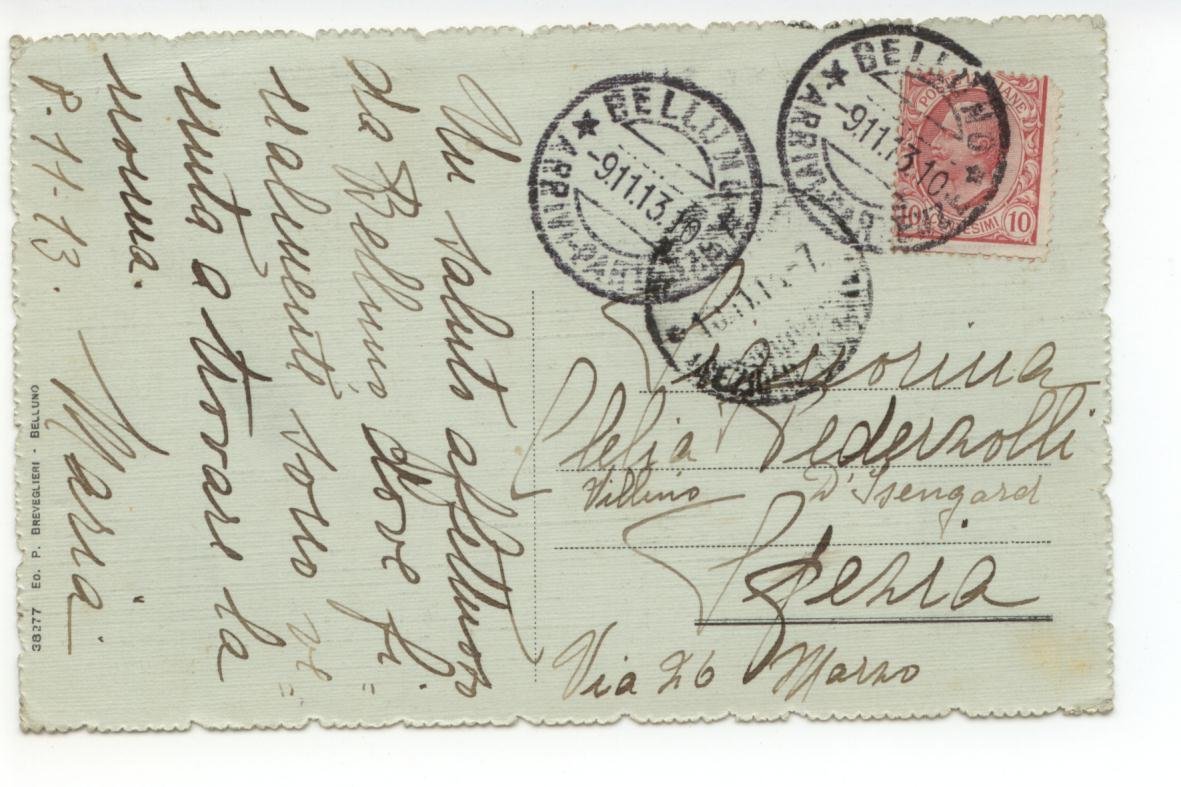 Un saluto affettuoso
da Belluno dove fi
nalmente sono ve
nuta a trovare la
nonna.
8.11.13. Maria.
38277 ED. P. BREVEGLIERI - BELLUNO
BELLUNO
ARRIVI-PARTENZE
-9.11.13.10
BELLUNO
ARRIVI-PARTENZE
-9.11.13.10
POSTE ITALIANE
10 CENTESIMI 10
Signorina
Clelia Pederzolli
Villino D'Isengard
Spezia
Via 26 Marzo